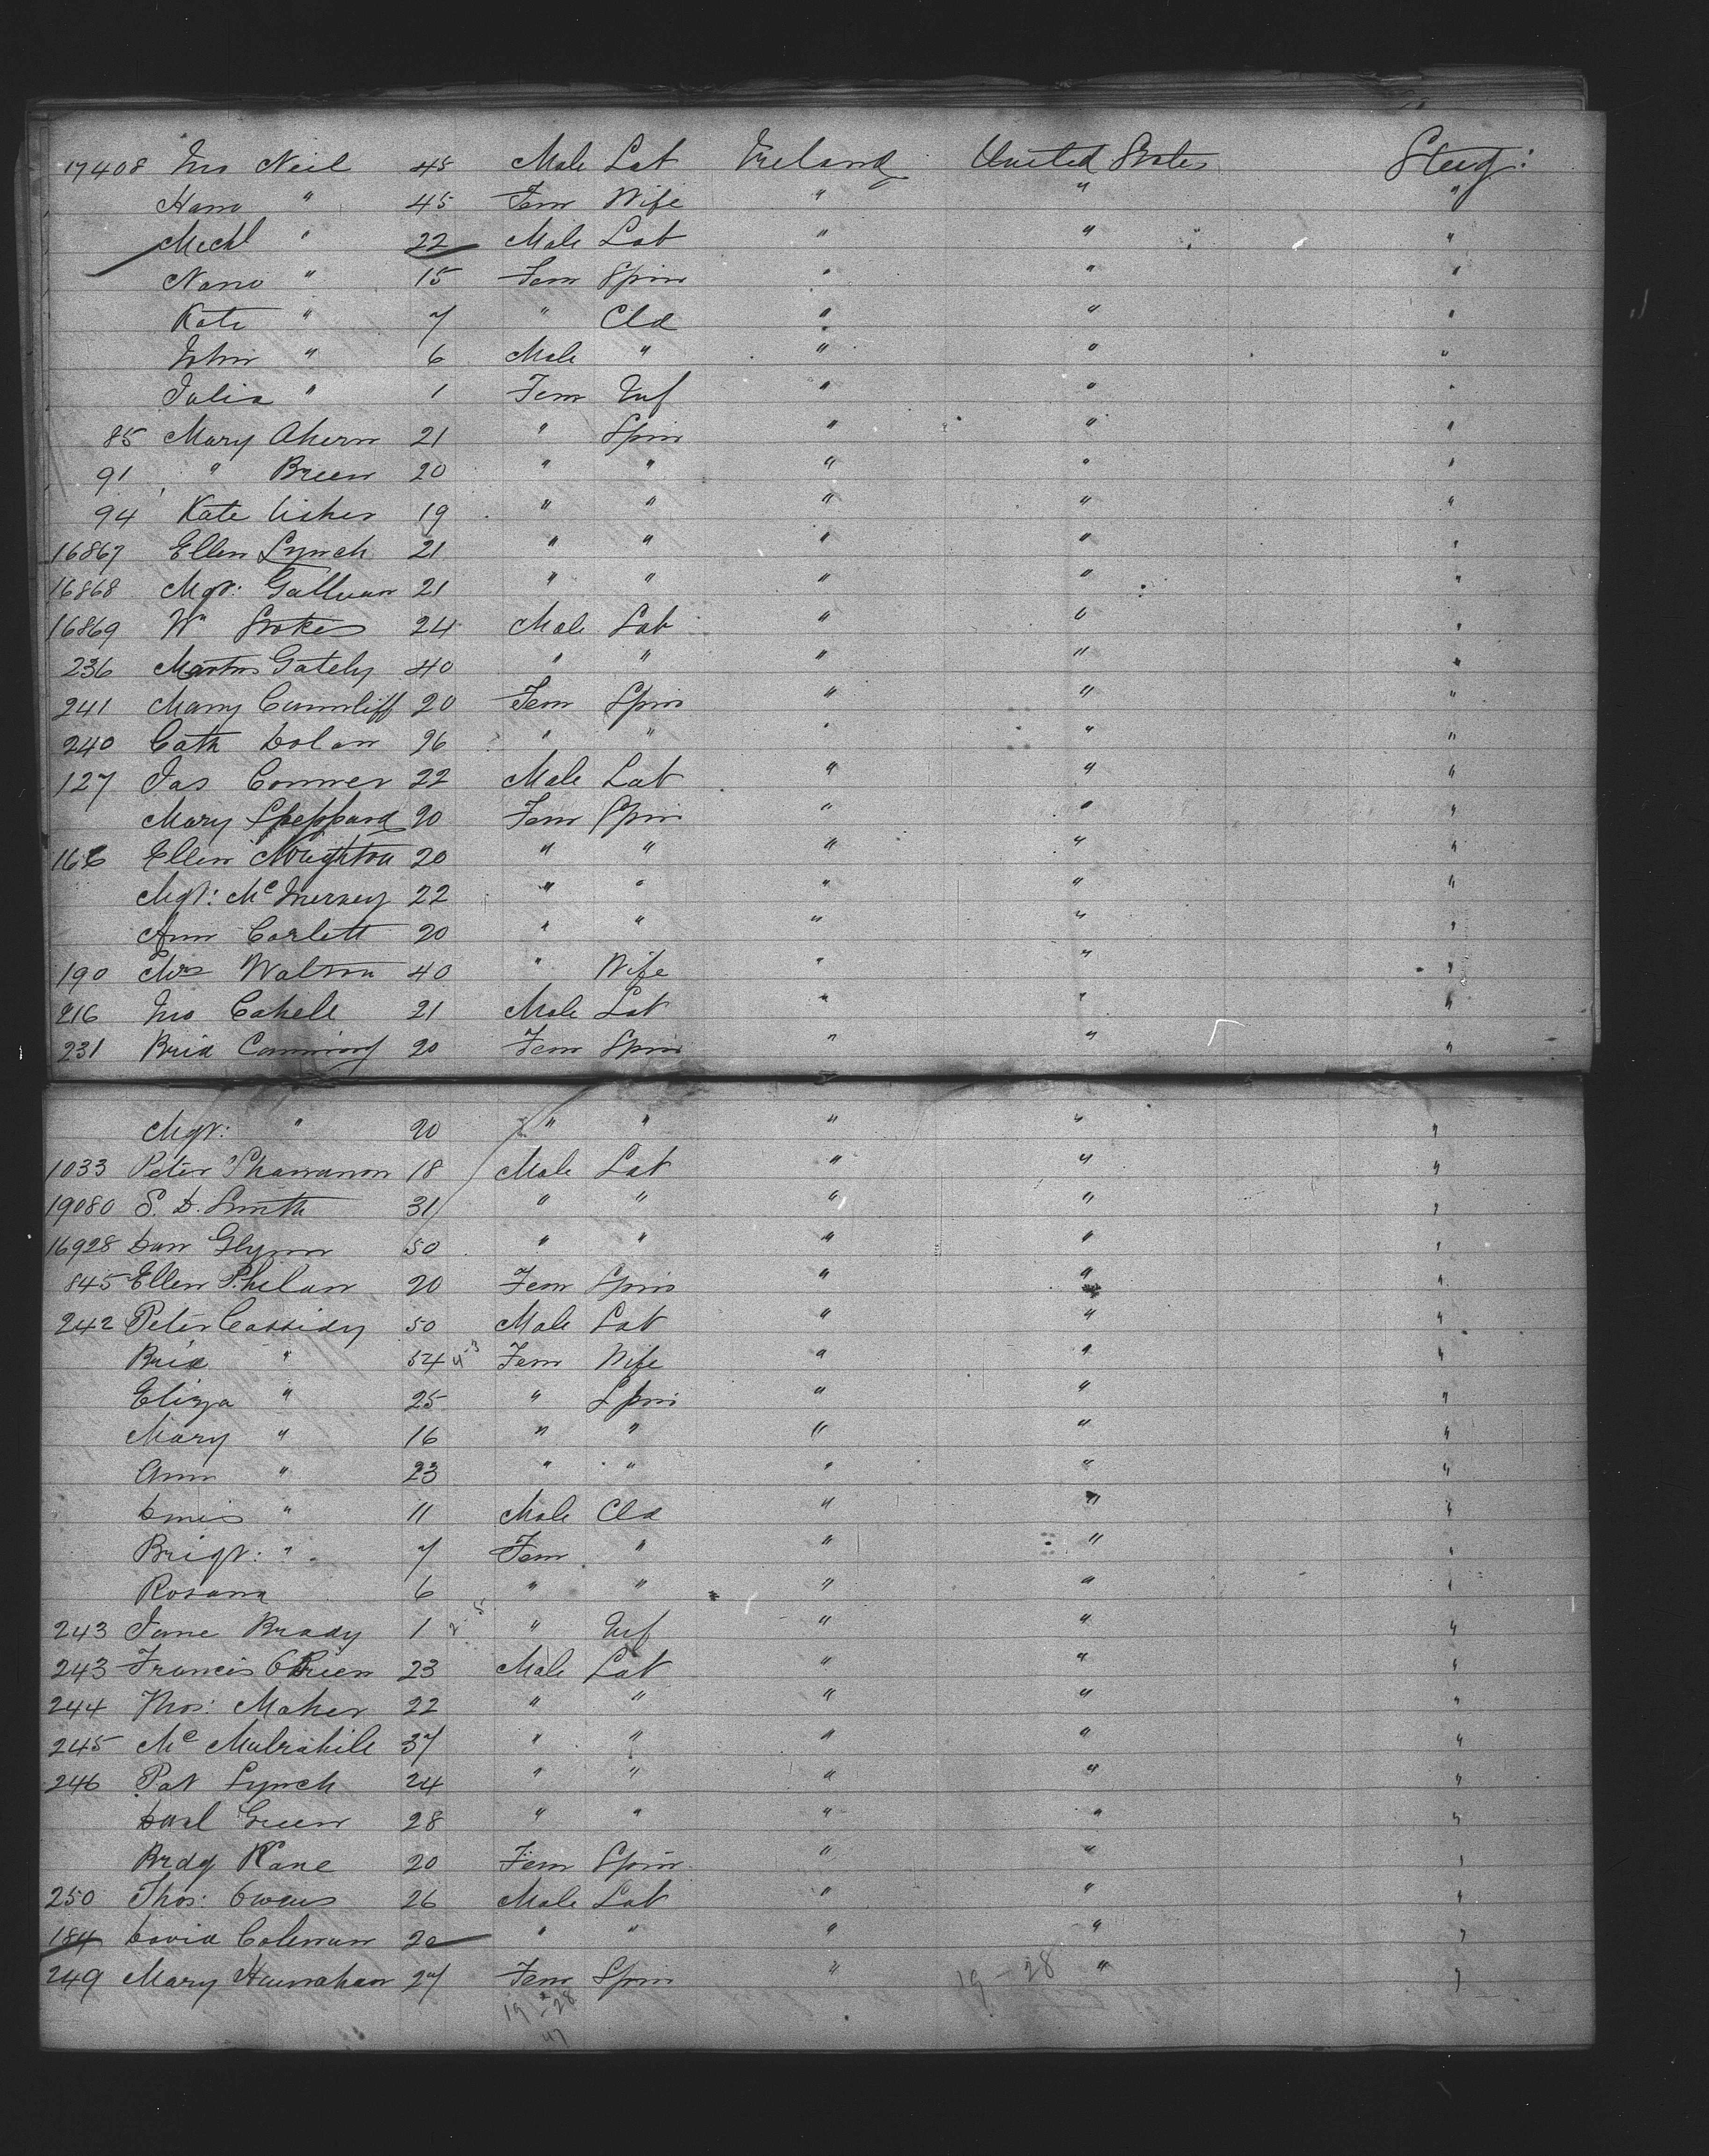 17408 Jno Neil 45 Male Lab Ireland United States Steerg:
Hano " 45 Fem Wife " " "
Michl " 22 Male Lab " " "
Nano " 15 Fem Spin " " "
Kate " 7 " Cld " " "
John " 6 Male " " " "
Julia " 1 Fem Inf " " "
85 Mary Ahern 21 " Spin " " "
91 " Breen 20 " " " " "
94 Kate Usher 19 " " " " "
16867 Ellen Lynch 21 " " " " "
16868 Mgt: Gallivan 21 " " " " "
16869 Wm Stokes 24 Male Lab " " "
236 Martin Gately 40 " " " " "
241 Mary Cunnliff 20 Fem Spin " " "
240 Cath Dolan 26 " " " " "
127 Jas Conner 22 Male Lab " " "
Mary Sheppard 20 Fem Spin " " "
166 Ellen Noughton 20 " " " " "
Mgt: McInerney 22 " " " " "
Ann Corlett 20 " " " " "
190 Mrs Walton 40 " Wife " " "
216 Jno Cahell 21 Male Lab " " "
231 Brid Cumming 20 Fem Spin " " "
Mgt: " 20 " " " " "
1033 Peter Shannanon 18 Male Lab " " "
19080 S. D. Smith 31 " " " " "
16928 Dan Glynn 50 " " " " "
845 Ellen Philan 20 Fem Spin " " "
242 Peter Cassidy 50 Male Lab " " "
Brid " 54 4-3 Fem Wife " " "
Eliza " 25 " Spin " " "
Mary " 16 " " " " "
Ann " 23 " " " " "
Dnis " 11 Male Cld " " "
Brigt: " 7 Fem " " " "
Rosana 6 " " " " "
243 Jane Brady 1 2-5 " Inf " " "
243 Francis OBrien 23 Male Lab " " "
244 Thos: Maher 22 " " " " "
245 Mc Mulrahile 37 " " " " "
246 Pat Lynch 24 " " " " "
Danl Green 28 " " " " "
Brdg Kane 20 Fem Spin " " "
250 Thos: Owens 26 Male Lab " " "
184 David Coleman 20 " " " " "
249 Mary Hanrahan 27 Fem Spin " " "
19-28
19-28
47